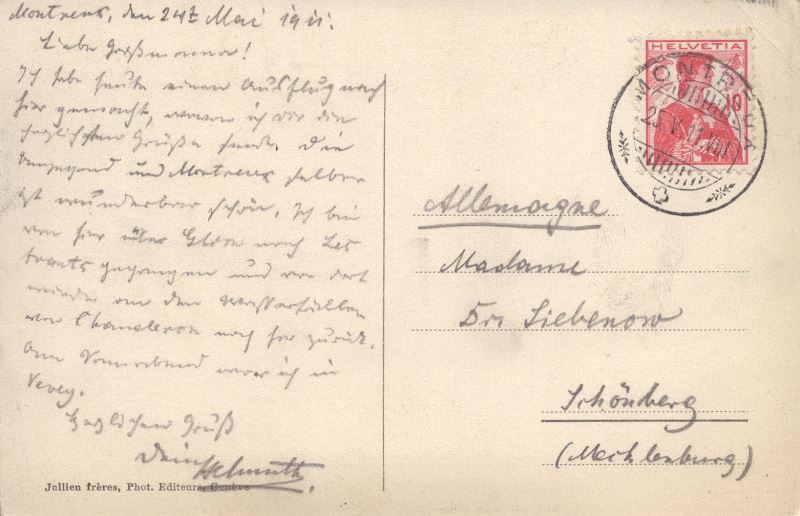 Montreux, den 24t Mai 1911.
Liebe Großmama!
Ich habe heute einen Ausflug nach
hier gemacht, wovon ich dir die
herzlichsten Grüße sende. Die
Umgegend und Montreux selber
ist wunderbar schön. Ich bin
von hier über Glion nach Les
Avants gegangen und von dort
wieder an den Wasserfällen
von Chauderon nach hier zurück.
Am Sonnabend war ich in
Vevey.
Herzlichen Gruß
Dein Helmuth.
Jullien frères, Phot. Editeurs, Genève
HELVETIA
10
MONTREUX
25.V.11.VIII
Allemagne
Madame
Dr. Siebenow
Schönberg
(Mecklenburg)